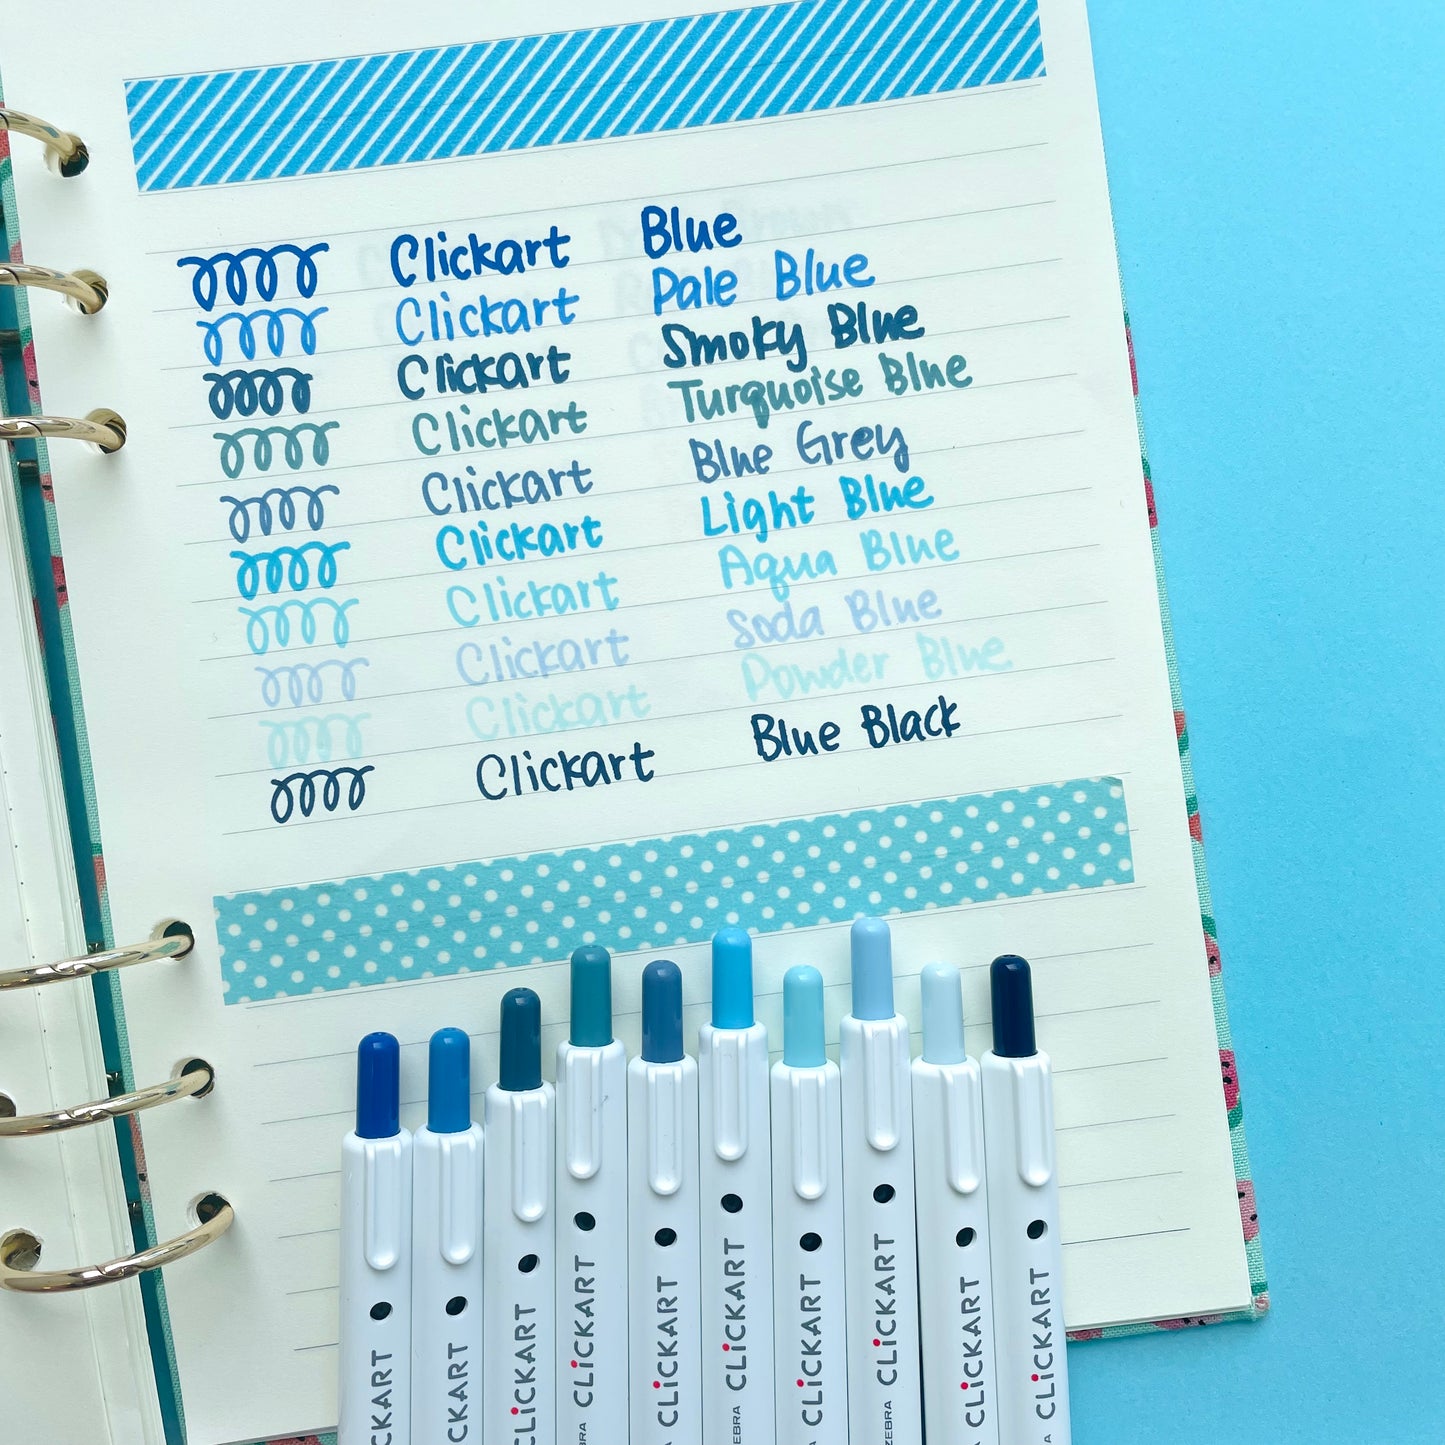 Clickart Blue
Clickart Pale Blue
Clickart Smoky Blue
Clickart Turquoise Blue
Clickart Blue Grey
Clickart Light Blue
Clickart Aqua Blue
Clickart Soda Blue
Clickart Powder Blue
Clickart Blue Black
CKART
CKART
CLiCKART
ZEBRA CLiCKART
CLiCKART
ZEBRA CLiCKART
CLiCKART
ZEBRA CLiCKART
CLiCKART
CLiCKART